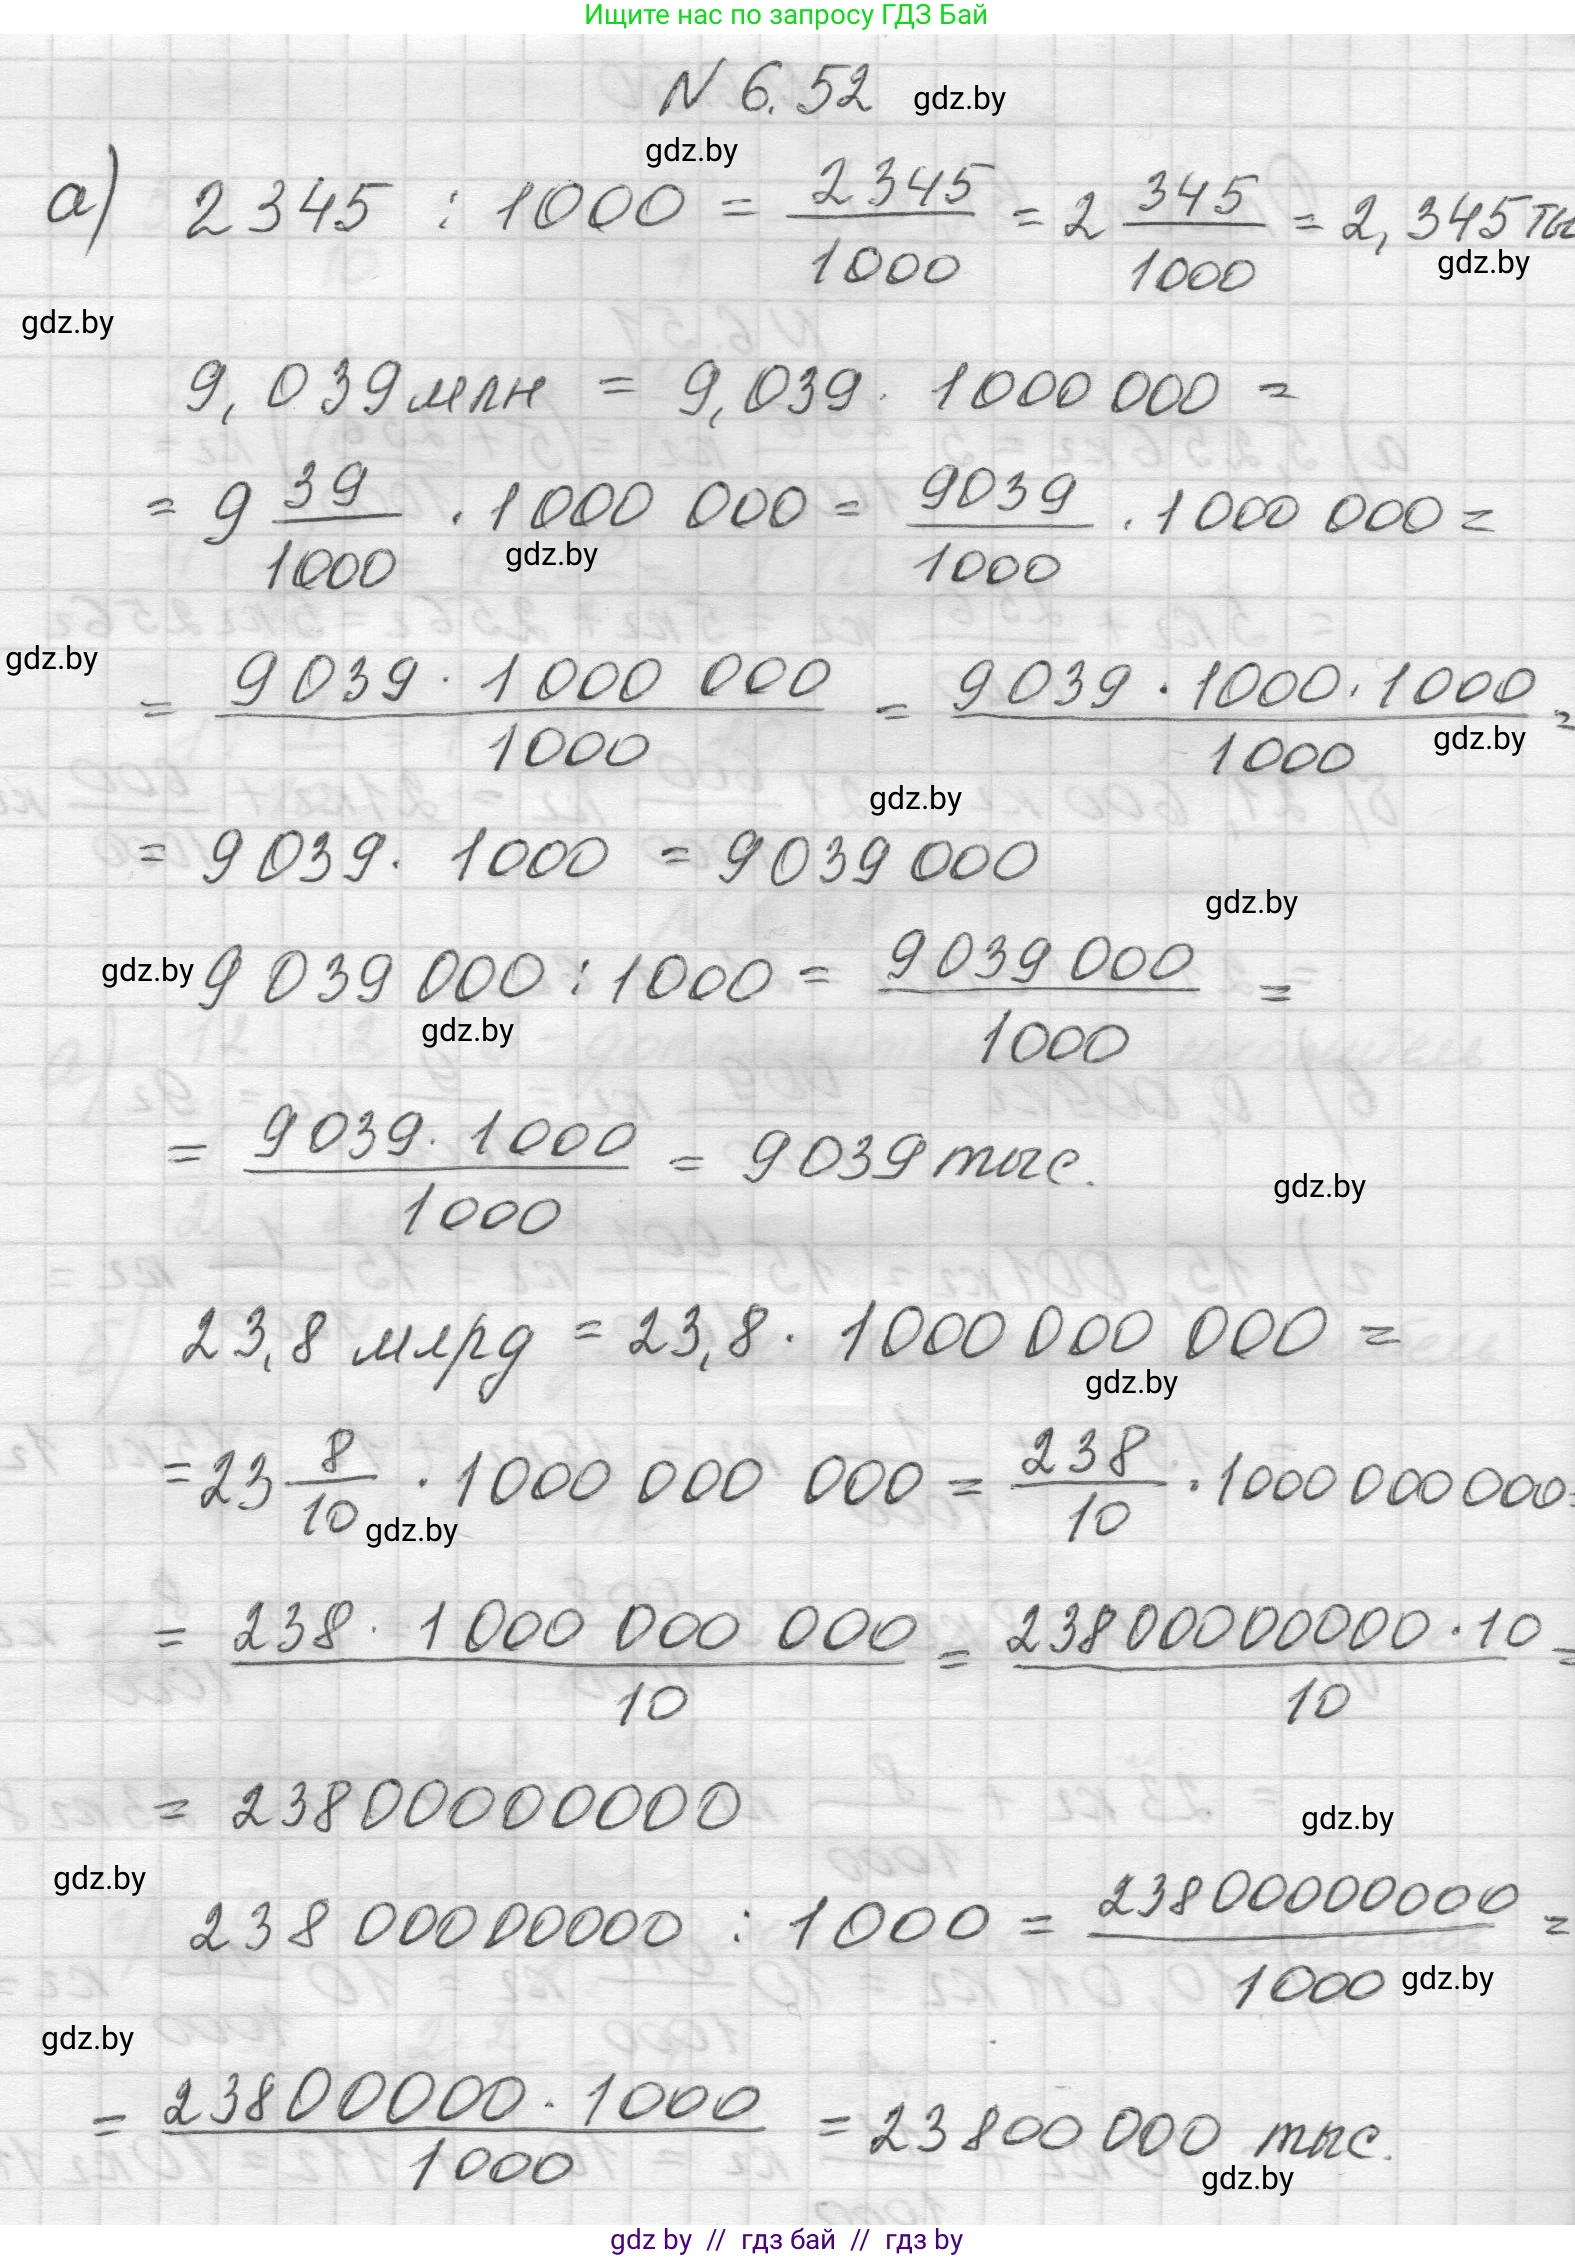 Ищите нас по запросу ГДЗ Бай
N 6.52 gdz.by
gdz.by
а) 2345 : 1000 = 2345/1000 = 2 345/1000 = 2,345 ты
gdz.by
gdz.by
9,039 млн = 9,039 · 1000 000 =
= 9 39/1000 · 1000 000 = 9039/1000 · 1000 000 =
gdz.by
gdz.by
= 9039 · 1000 000/1000 = 9039 · 1000 · 1000/1000 =
gdz.by
gdz.by
= 9039 · 1000 = 9039 000
gdz.by
gdz.by 9 039 000 : 1000 = 9039 000/1000 =
gdz.by
= 9039 · 1000/1000 = 9039 тыс.
gdz.by
23,8 млрд = 23,8 · 1000 000 000 =
gdz.by
= 23 8/10 · 1000 000 000 = 238/10 · 1000 000 000 =
gdz.by
= 238 · 1 000 000 000/10 = 23800000000 · 10/10 =
= 23800000000
gdz.by
gdz.by
238 00000000 : 1000 = 23800000000/1000 =
gdz.by
gdz.by
= 23800000 · 1000/1000 = 23800 000 тыс.
gdz.by
gdz by // гдз бай // гдз by